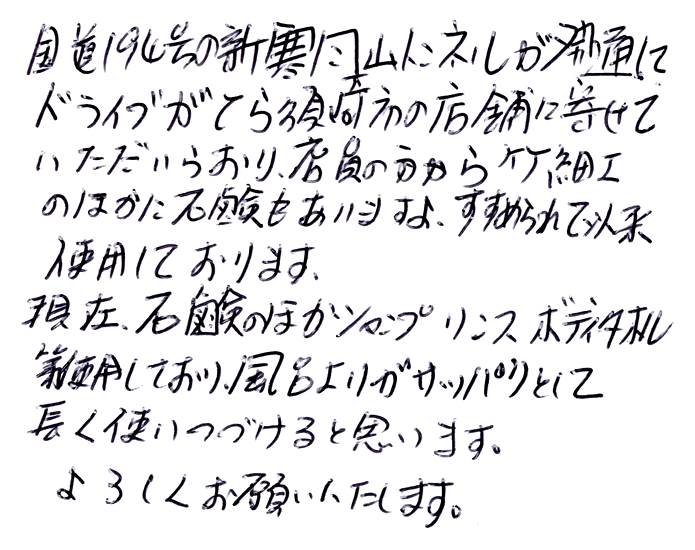 国道194号の新寒風山トンネルが開通して
ドライブがてら須崎市の店舗に寄せて
いただいており、店員の方から竹細工
のほかに石鹸もありますよ、すすめられて以来
使用しております、
現在、石鹸のほかシャンプ リンス ボディタオル
等使用しており、風呂よりがサッパリとして
長く使いつづけると思います。
よろしくお願いいたします。